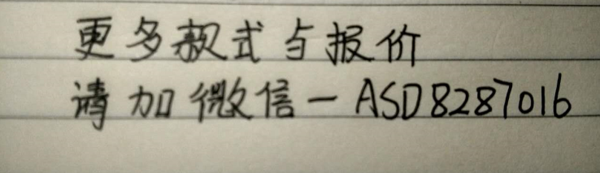 更多款式与报价
请加微信－ASD8287016